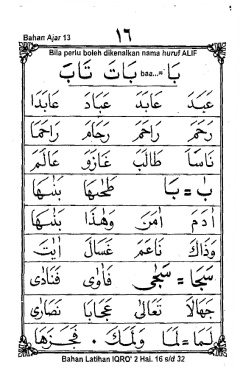 Bahan Ajar 13
١٦
Bila perlu boleh dikenalkan nama huruf ALIF
بَا =...baa بَاتَ تَابَ
عَبَدَ عَابَدَ عَبَادَ عَابَدَا
رَحَمَ رَاحَمَ رَحَامَ رَاحَمَا
نَاسَا طَالَبَ غَازَوَ عَالَمَ
بٰ = بَا طَحٰىهَا بَنٰىهَا
اٰدَمَ اٰمَنَ وَهٰذَا بَنٰىهَا
وَذَاكَ نَاعَمَ غَسَالَ اٰيٰتَ
سَجَا = سَجٰى فَاَوٰى فَنَادٰى
جَهَالَا تَعَالٰى عَجَابَا نَصَارٰى
لَمَا = لَمَا وَلَمَكَ . فَجَرَهَا
Bahan Latihan IQRO' 2 Hal. 16 s/d 32